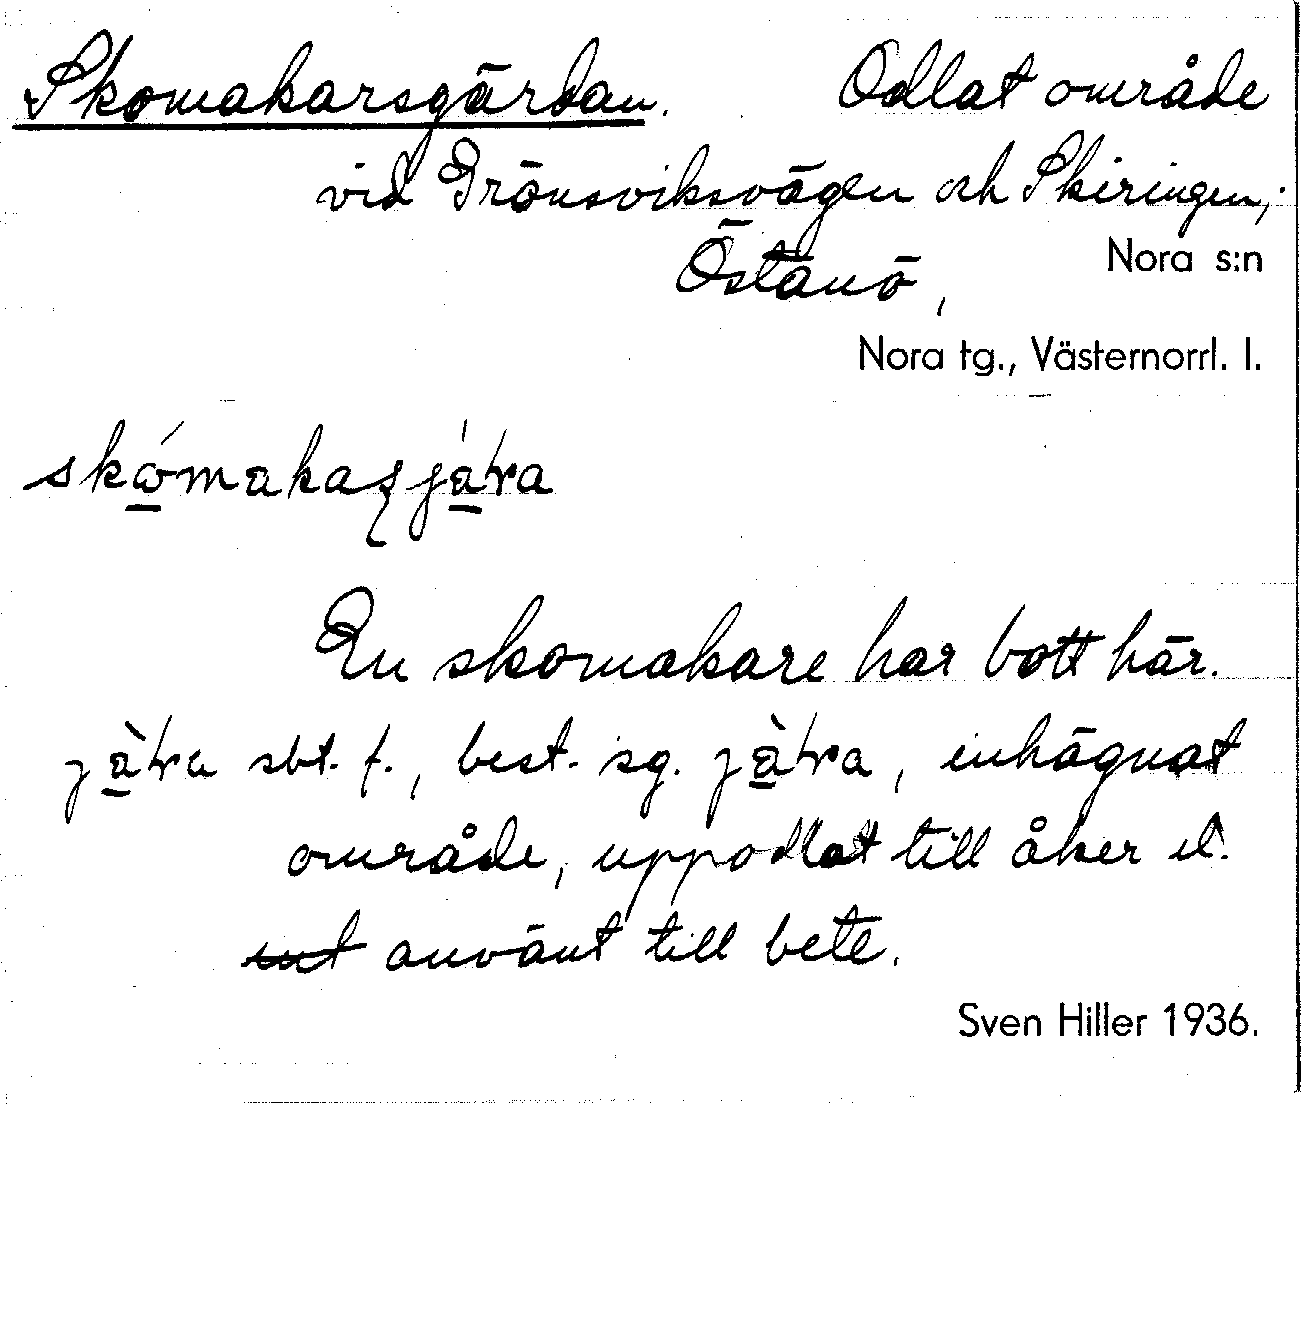 Skomakarsgärdan. Odlat område
vid Grönsviksvägen och Skiringen,
Östanö,
Nora s:n
Nora tg., Västernorrl. l.
En skomakare har bott här.
sbt. f., best. sg. , inhägnat
område, uppodlat till åker el.
använt till bete.
Sven Hiller 1936.